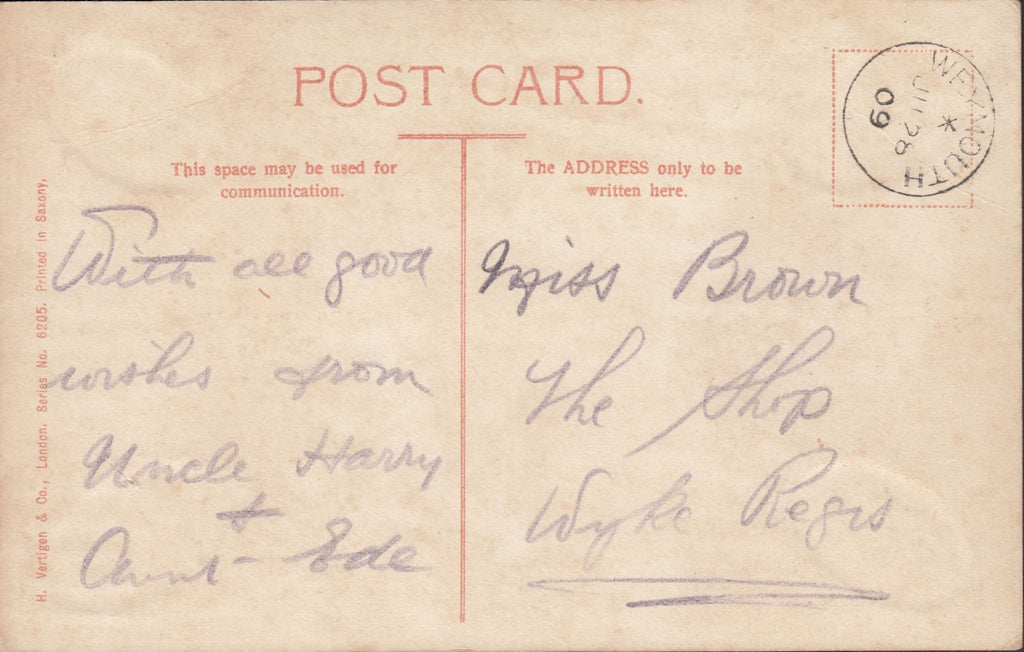 POST CARD.
This space may be used for
communication.
The ADDRESS only to be
written here.
WEYMOUTH
*
JU 28
09
With all good
wishes from
Uncle Harry
+
Aunt Ede
Miss Brown
The Shop
Wyke Regis
H. Vertigen & Co., London. Series No. 6205. Printed in Saxony.